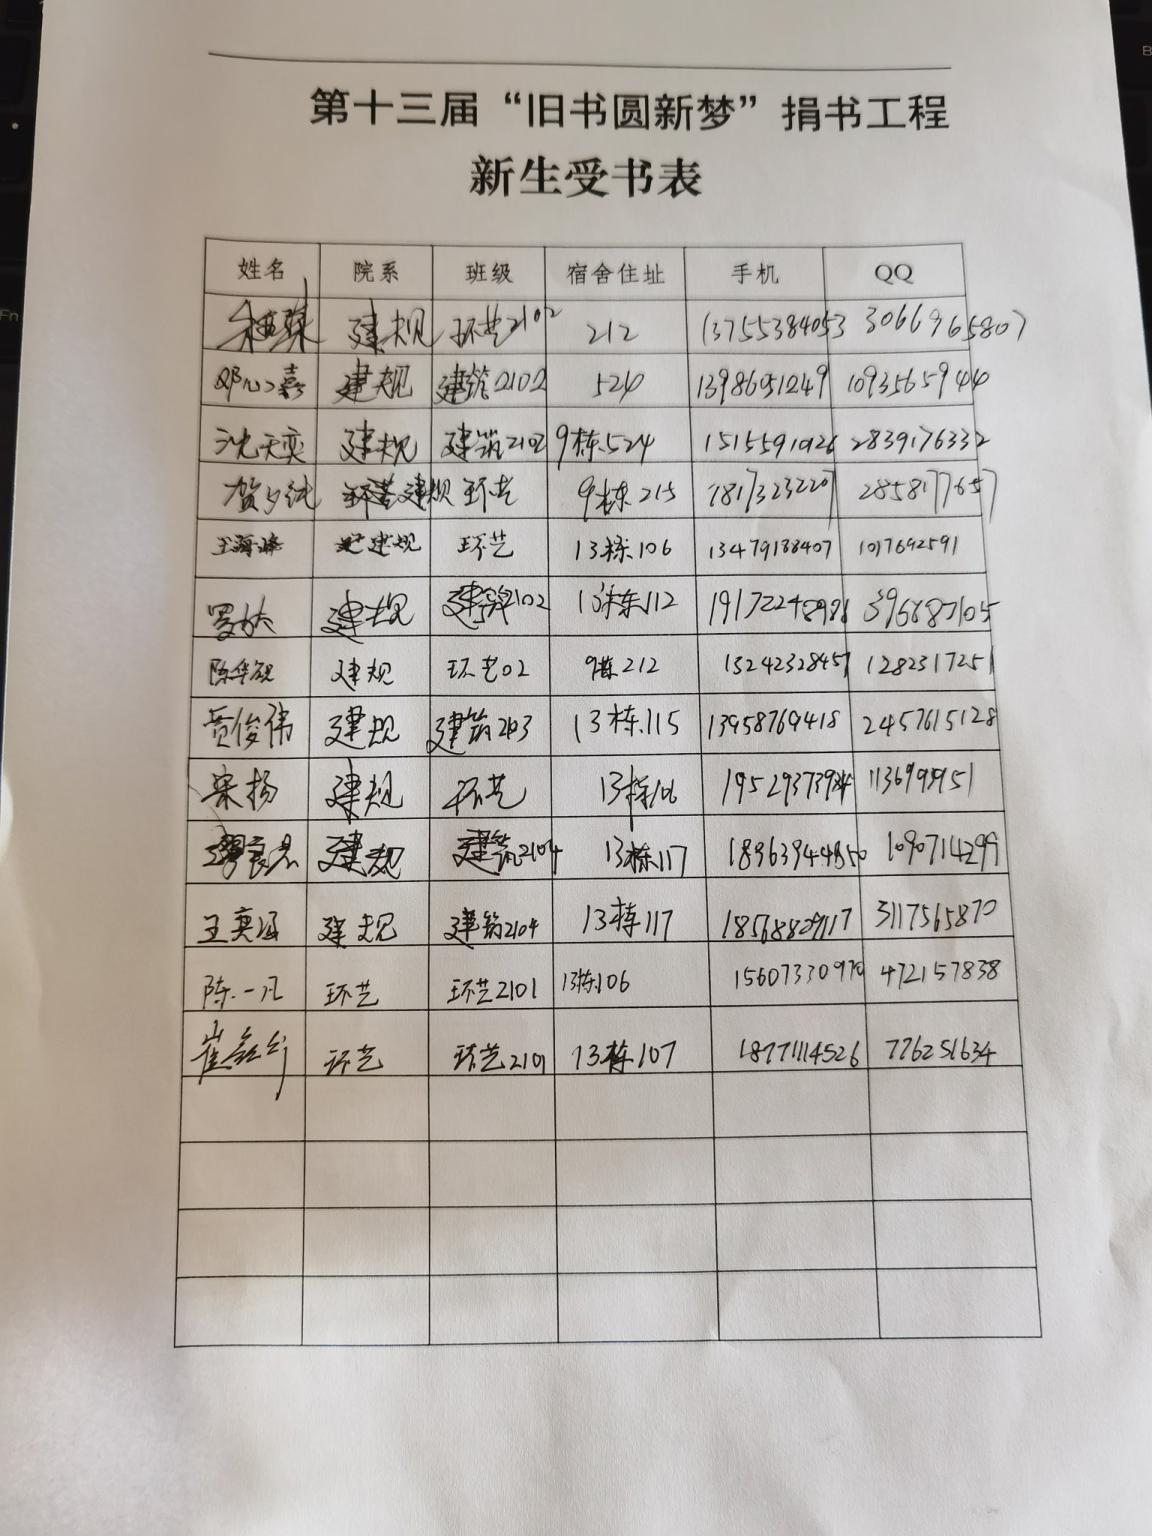 第十三届“旧书圆新梦”捐书工程
新生受书表
姓名 院系 班级 宿舍住址 手机 QQ
建规 环艺2102 212 13755384053 3066965807
邓心嘉 建规 建筑2102 524 13986951249 1093565944
沈天奕 建规 建筑2102 9栋524 2839176332
贺夕纯 建规 环艺 9栋215 18173232207 2858177657
王海峰 建规 环艺 13栋106 13479138407 1017692591
建规 建筑2102 13栋112 396887105
陈华砚 建规 环艺02 9栋212 13242328457 1282317251
贾俊伟 建规 建筑2103 13栋115 13958769418 2457615128
宋扬 建规 环艺 13栋106
建规 建筑2104 13栋117 18963944850 1090714299
王奕涵 建规 建筑2104 13栋117 18568829117 3117565870
陈一凡 环艺 环艺2101 13栋106 15607330970 472157838
环艺 环艺2101 13栋107 18771114526 776251634